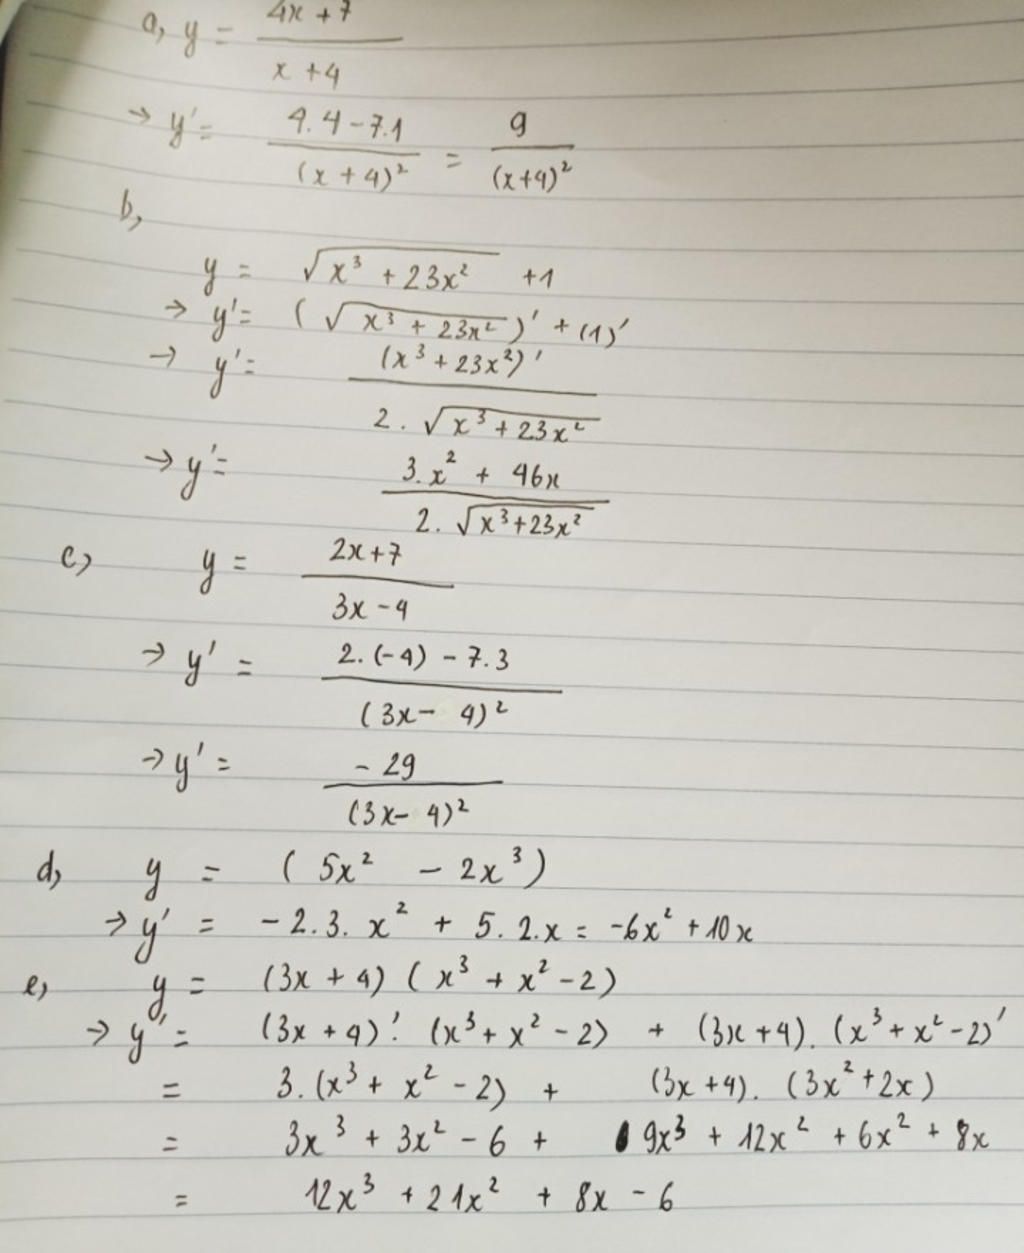 a, y = (4x + 7)/(x + 4)
→ y' = (4.4 - 7.1)/(x + 4)² = 9/(x+4)²
b,
y = √(x³ + 23x²) + 1
→ y' = (√(x³ + 23x²))' + (1)'
→ y' = (x³ + 23x²)'/(2.√(x³ + 23x²))
→ y' = (3.x² + 46x)/(2.√(x³+23x²))
c, y = (2x+7)/(3x - 4)
→ y' = (2.(-4) - 7.3)/(3x - 4)²
→ y' = -29/(3x - 4)²
d, y = (5x² - 2x³)
→ y' = -2.3.x² + 5.2.x = -6x² + 10x
e, y = (3x + 4)(x³ + x² - 2)
→ y' = (3x + 4)'.(x³ + x² - 2) + (3x + 4).(x³ + x² - 2)'
= 3.(x³ + x² - 2) + (3x + 4).(3x² + 2x)
= 3x³ + 3x² - 6 + 9x³ + 12x² + 6x² + 8x
= 12x³ + 21x² + 8x - 6